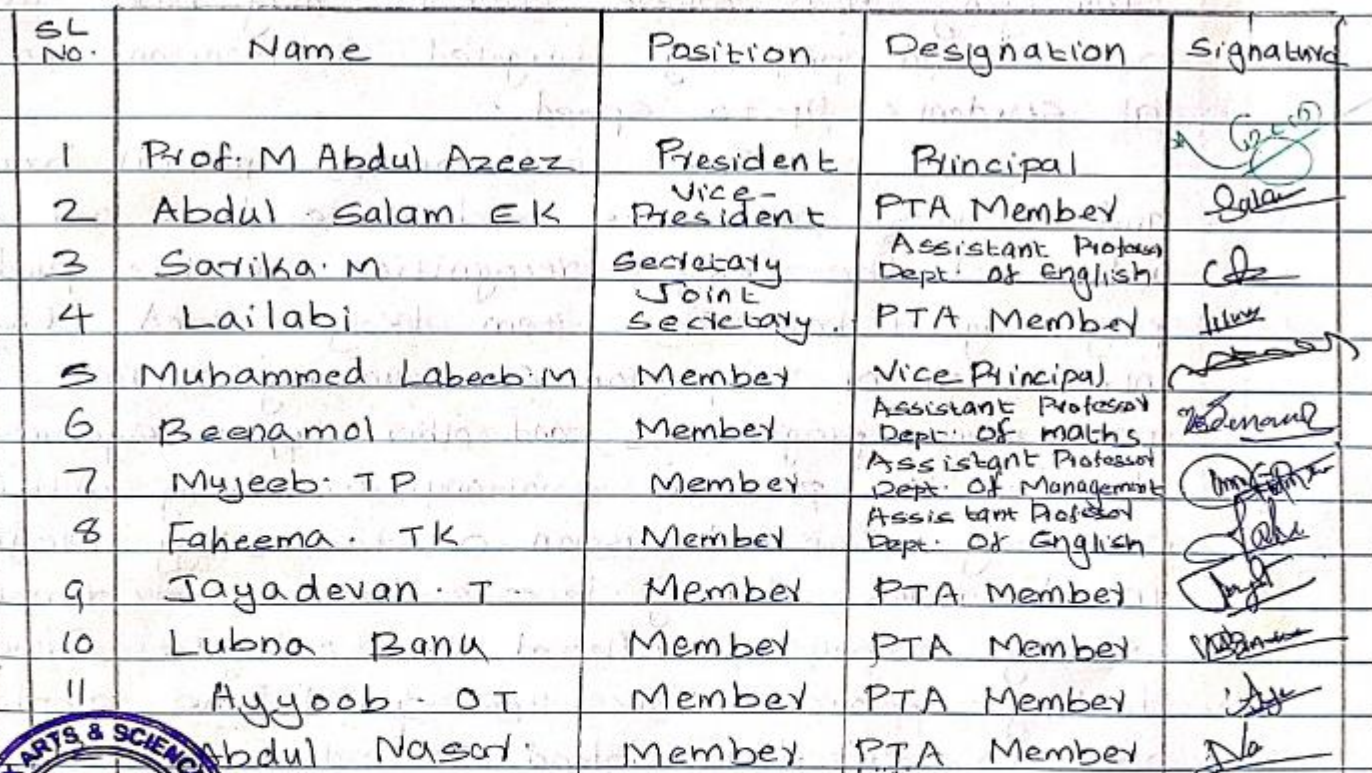 SL No. Name Position Designation Signature
1 Prof. M Abdul Azeez President Principal
2 Abdul Salam EK Vice-President PTA Member
3 Sarika. M Secretary Assistant Professor Dept. of English
4 Lailabi Joint Secretary. PTA Member
5 Muhammed Labeeb M Member Vice Principal
6 Beenamol Member Assistant Professor Dept. Of maths
7 Mujeeb. T P Member Assistant Professor Dept. Of Management
8 Faheema. TK Member Assistant Professor Dept. Of English
9 Jayadevan. T. Member PTA Member
10 Lubna Banu Member PTA Member
11 Ayyoob. O T Member PTA Member
Abdul Nasar. Member PTA Member
ARTS & SCIENC